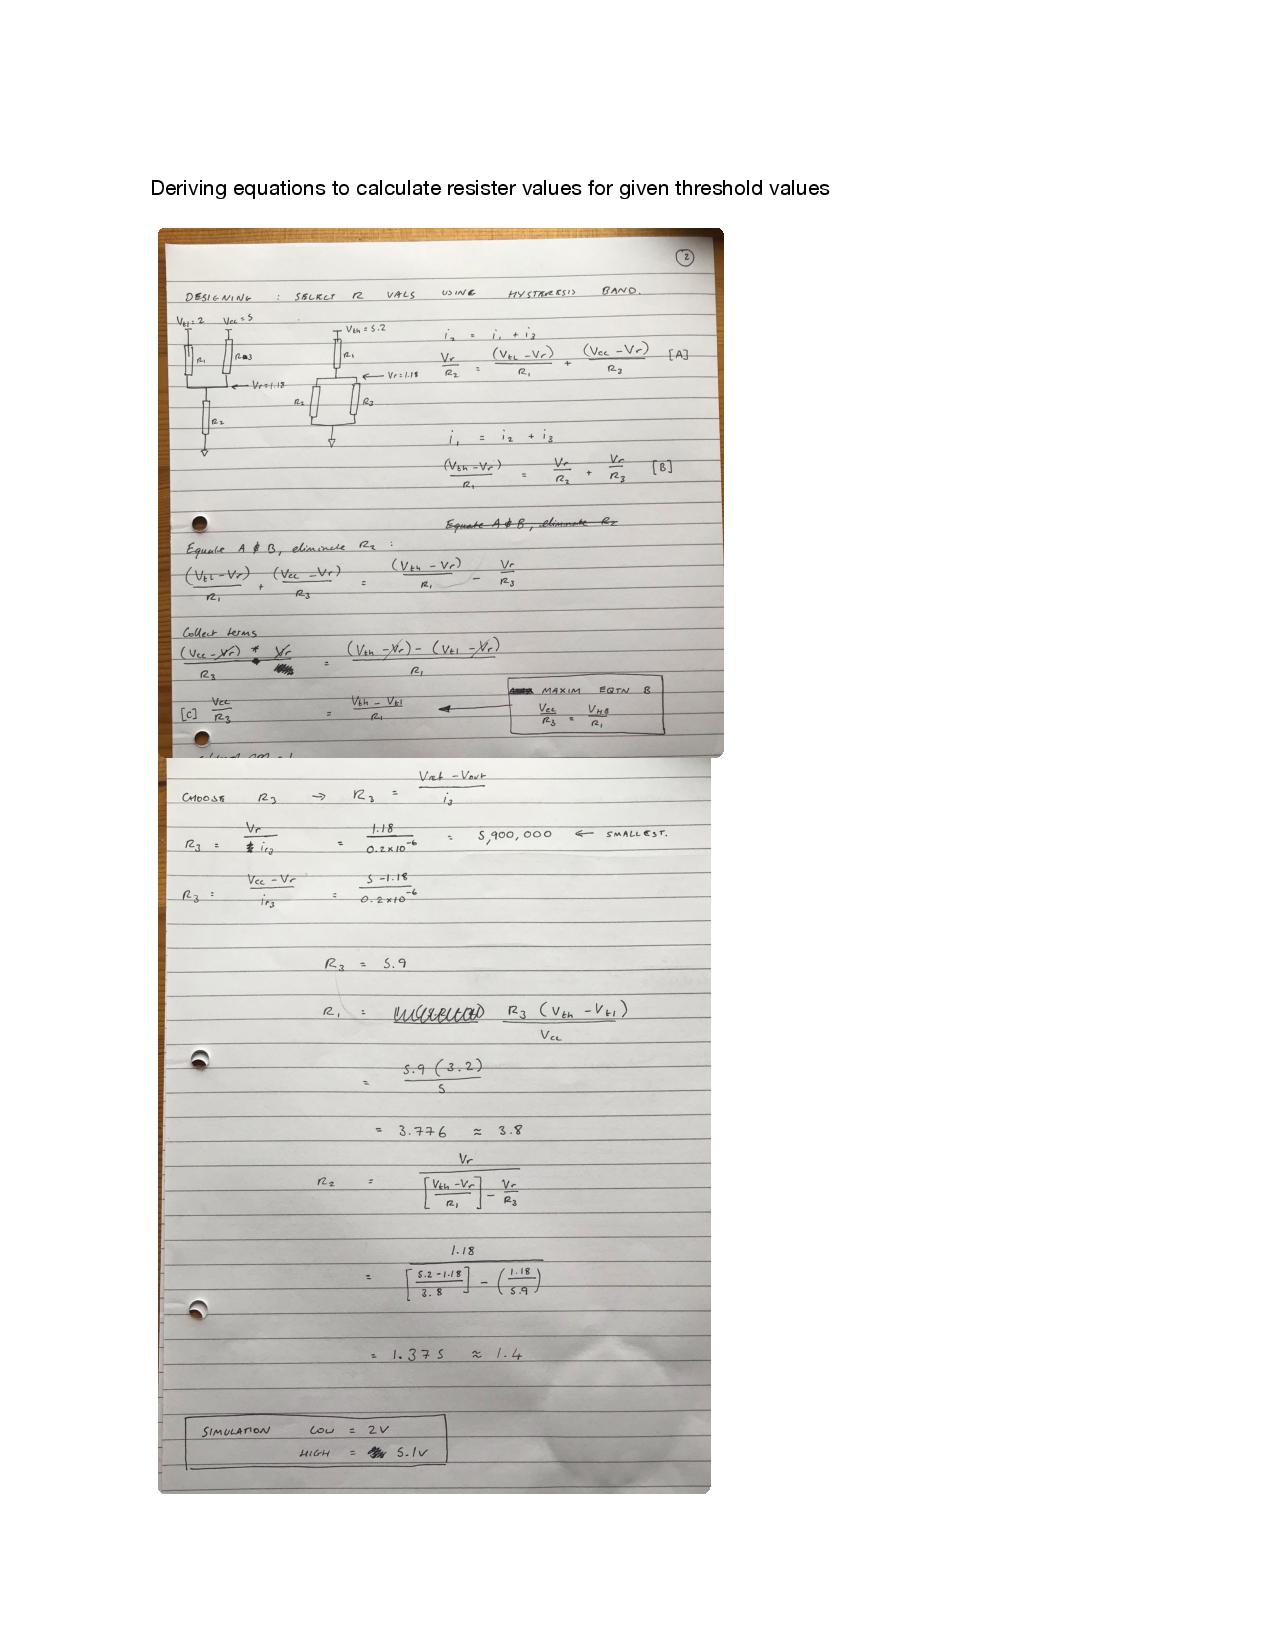 Deriving equations to calculate resister values for given threshold values
2
DESIGNING : SELECT R VALS USING HYSTERESIS BAND.
Vtl = 2 Vcc = 5
R1 R3
← Vr = 1.18
R2
Vth = 5.2
R1
← Vr = 1.18
R2 R3
i2 = i1 + i3
Vr/R2 = (Vtl - Vr)/R1 + (Vcc - Vr)/R3 [A]
i1 = i2 + i3
(Vth - Vr)/R1 = Vr/R2 + Vr/R3 [B]
Equate A & B, eliminate R2
Equate A & B, eliminate R2 :
(Vtl - Vr)/R1 + (Vcc - Vr)/R3 = (Vth - Vr)/R1 - Vr/R3
Collect terms
(Vcc - Vr) + Vr/R3 = (Vth - Vr) - (Vtl - Vr)/R1
[C] Vcc/R3 = Vth - Vtl/R1
MAXIM EQTN B
Vcc/R3 = VHB/R1
CHOOSE R3 → R3 = Vref - Vout/i3
R3 = Vr/ir3 = 1.18/0.2×10^-6 = 5,900,000 ← SMALLEST.
R3 = Vcc - Vr/ir3 = 5 - 1.18/0.2×10^-6
R3 = 5.9
R1 = R3 (Vth - Vtl)/Vcc
= 5.9 (3.2)/5
= 3.776 ≈ 3.8
R2 = Vr/[Vth - Vr/R1] - Vr/R3
= 1.18/[5.2 - 1.18/3.8] - (1.18/5.9)
= 1.375 ≈ 1.4
SIMULATION LOW = 2V
HIGH = 5.1V